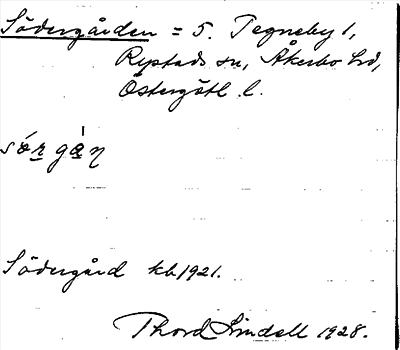 Södergården = 5. Tegneby 1,
Rystads sn, Åkerbo hd,
Östergötl. l.
Södergård kb 1921.
Thord Lindell 1928.